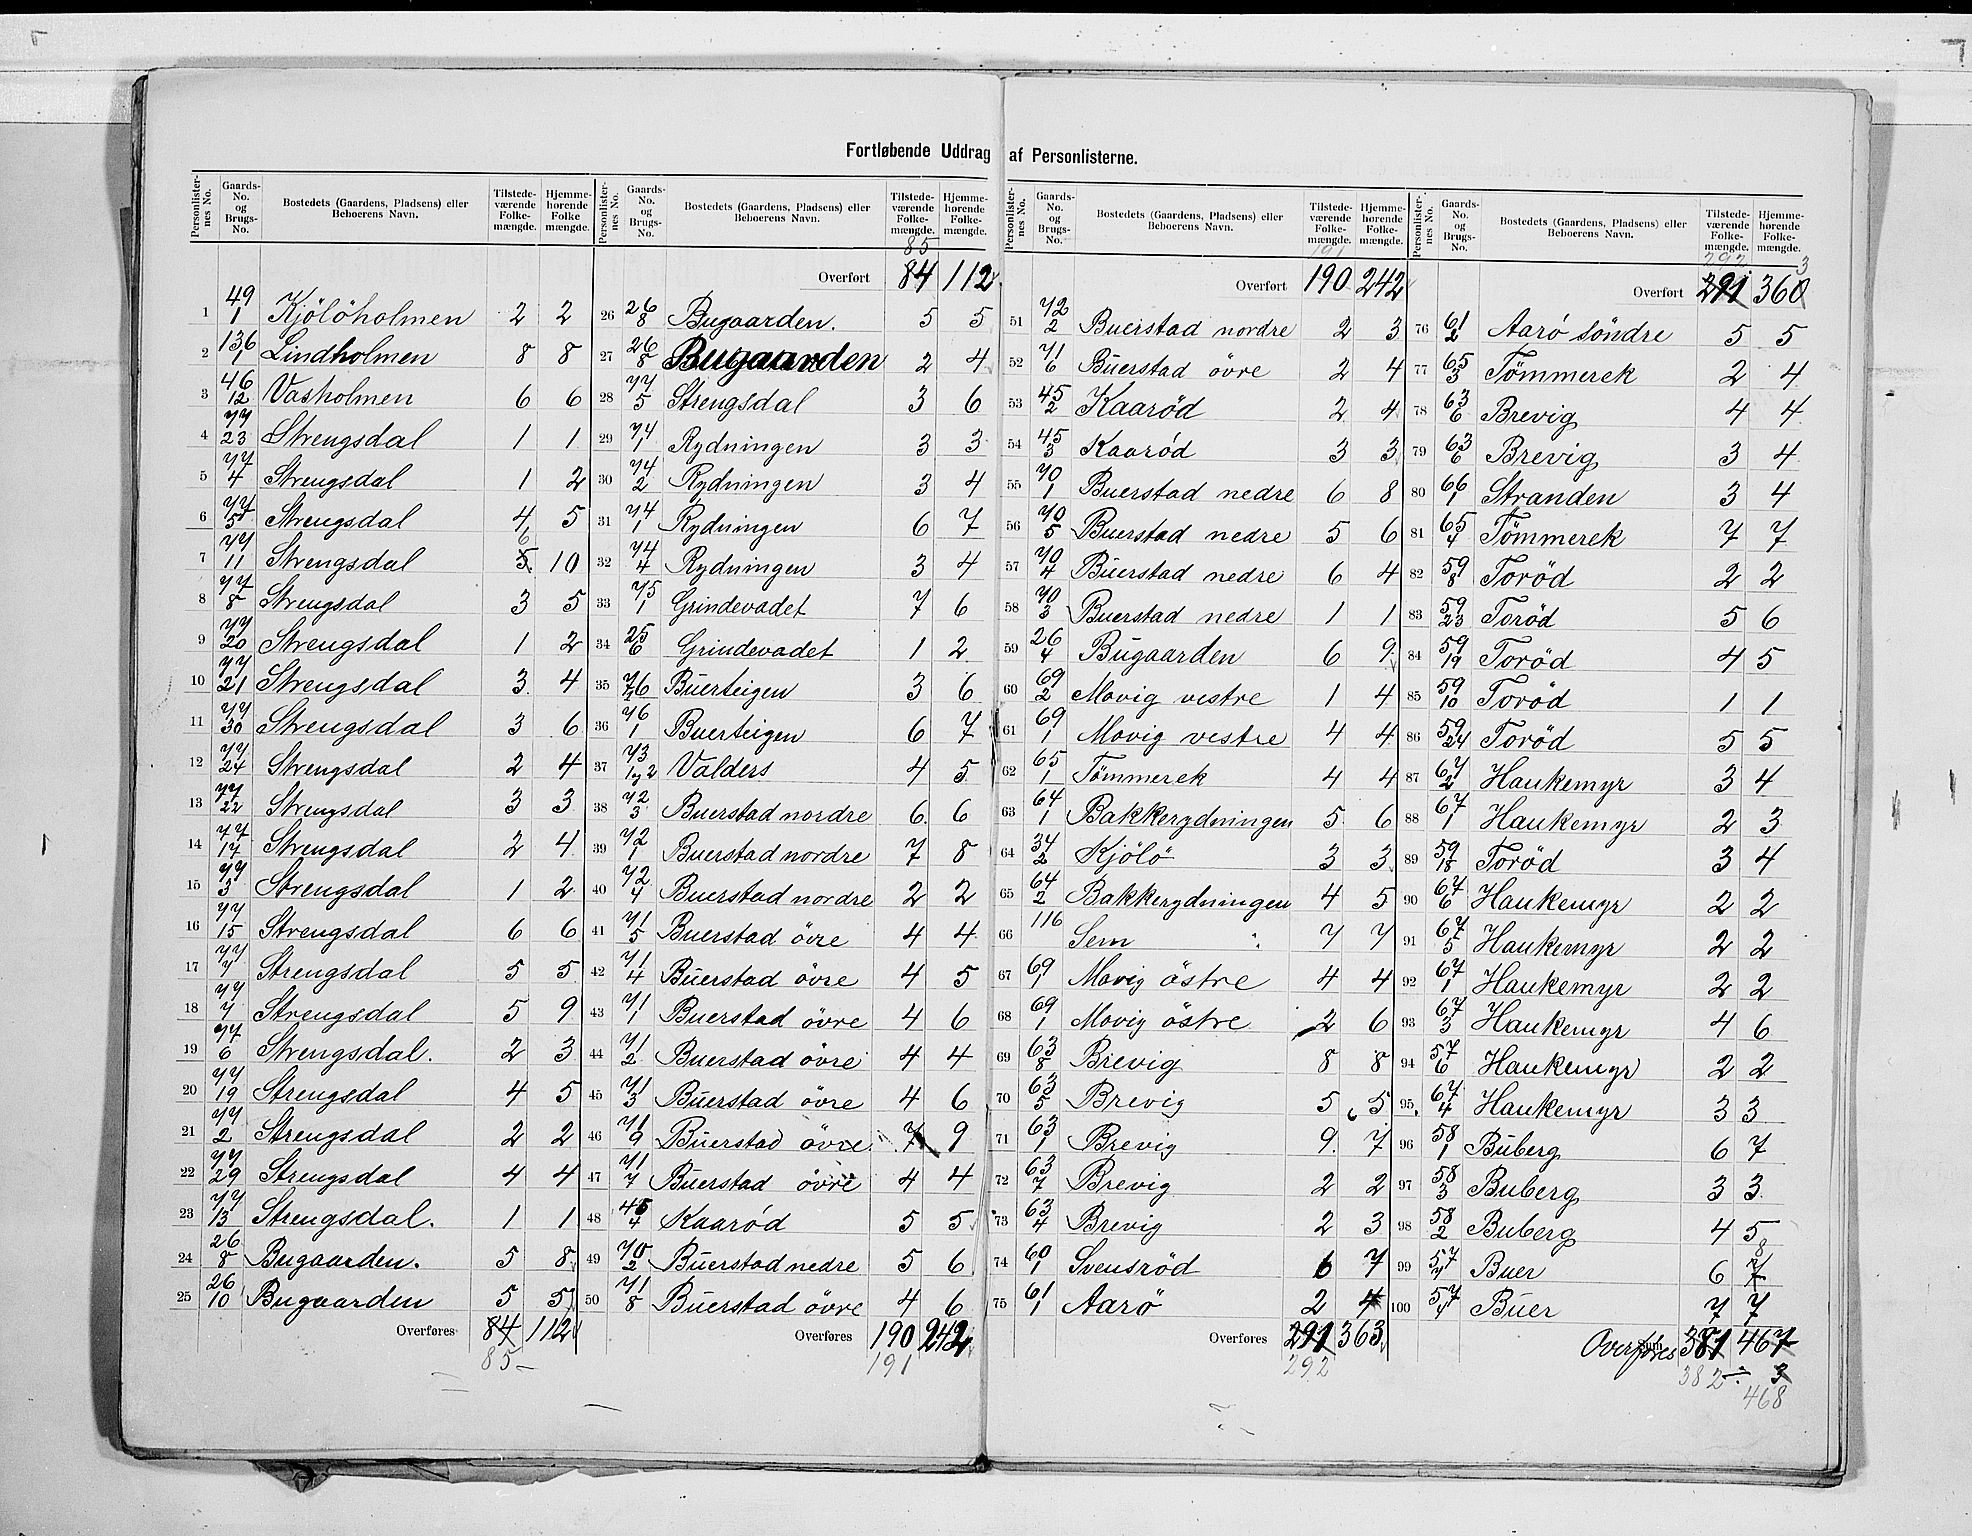 Fortløbende Uddrag af Personlisterne.
Personlister-nes No. | Gaards-No. og Brugs-No. | Bostedets (Gaardens, Pladsens) eller Beboerens Navn. | Tilstede-værende Folke-mængde. | Hjemme-hørende Folke mængde.
1 49/1 Kjölöholmen 2 2
2 136/1 Lindholmen 8 8
3 46/12 Vasholmen 6 6
4 77/23 Strengsdal 1 1
5 77/4 Strengsdal 1 2
6 77/5 Strengsdal 4 5
7 77/11 Strengsdal 5 6 10
8 77/8 Strengsdal 3 5
9 77/20 Strengsdal 1 2
10 77/21 Strengsdal 3 4
11 77/30 Strengsdal 3 6
12 77/24 Strengsdal 2 4
13 77/22 Strengsdal 3 3
14 77/17 Strengsdal 2 4
15 77/3 Strengsdal 1 2
16 77/15 Strengsdal 6 6
17 77/7 Strengsdal 5 5
18 77/7 Strengsdal 5 9
19 77/6 Strengsdal. 2 3
20 77/19 Strengsdal 4 5
21 77/2 Strengsdal 2 2
22 77/29 Strengsdal 4 4
23 77/13 Strengsdal. 1 1
24 26/8 Bugaarden. 5 8
25 26/10 Bugaarden 5 5
Overføres 84 112
85
Personlister-nes No. | Gaards-No. og Brugs-No. | Bostedets (Gaardens, Pladsens) eller Beboerens Navn. | Tilstede-værende Folke-mængde. | Hjemme-hørende Folke-mængde.
85
Overført 84 112
26 26/8 Bugaarden. 5 5
27 26/8 Bugaarden 2 4
28 77/5 Strengsdal 3 6
29 74/1 Rydningen 3 3
30 74/2 Rydningen 3 4
31 74/1 Rydningen 6 7
32 74/4 Rydningen 3 4
33 75/1 Grindevadet 7 6
34 25/6 Grindevadet 1 2
35 Buerteigen 3 6
36 76/1 Buerteigen 6 7
37 73/1 og 2 Valders 4 5
38 72/3 Buerstad nordre 6 6
39 72/1 Buerstad nordre 7 8
40 72/4 Buerstad nordre 2 2
41 71/5 Buerstad övre 4 4
42 71/4 Buerstad övre 4 5
43 71/1 Buerstad övre 4 6
44 71/2 Buerstad övre 4 4
45 71/3 Buerstad övre 4 6
46 71/9 Buerstad övre 7 9
47 71/7 Buerstad övre 4 4
48 45/4 Kaaröd 5 5
49 70/2 Buerstad nedre 5 6
50 71/8 Buerstad övre 4 6
Overføres 190 242
191
Personlister-nes No. | Gaards-No. og Brugs-No. | Bostedets (Gaardens, Pladsens) eller Beboerens Navn. | Tilstede-værende Folke-mængde. | Hjemme-hørende Folke-mængde.
191
Overført 190 242
51 72/2 Buerstad nordre 2 3
52 71/6 Buerstad övre 2 4
53 45/2 Kaaröd 2 4
54 45/3 Kaaröd 3 3
55 70/1 Buerstad nedre 6 8
56 70/5 Buerstad nedre 5 6
57 70/4 Buerstad nedre 6 4
58 70/3 Buerstad nedre 1 1
59 26/4 Bugaarden 6 9
60 69/2 Movig vestre 1 4
61 69/1 Movig vestre 4 4
62 65/1 Tömmerek 4 4
63 64/1 Bakkerydningen 5 6
64 34/2 Kjölö 3 3
65 64/2 Bakkerydningen 4 5
66 116 Sem 7 7
67 69/1 Movig östre 4 4
68 69/1 Movig östre 2 6
69 63/8 Brevig 8 8
70 63/5 Brevig 5 5
71 63/1 Brevig 9 7
72 63/7 Brevig 2 2
73 63/4 Brevig 2 3
74 60/1 Svensröd 6 7
75 61/1 Aarö 2 4
Overføres 291 363
292
Personlister-nes No. | Gaards-No. og Brugs-No. | Bostedets (Gaardens, Pladsens) eller Beboerens Navn. | Tilstede-værende Folke-mængde. | Hjemme-hørende Folke-mængde.
292 3
Overført 291 360
76 61/2 Aarö söndre 5 5
77 65/3 Tömmerek 2 4
78 63/6 Brevig 4 4
79 63/6 Brevig 3 4
80 66/1 Stranden 3 4
81 65/4 Tömmerek 7 7
82 59/8 Toröd 2 2
83 59/23 Toröd 5 6
84 59/19 Toröd 4 5
85 59/10 Toröd 1 1
86 59/24 Toröd 5 5
87 67/2 Haukemyr 3 4
88 67/1 Haukemyr 2 3
89 59/18 Toröd 3 4
90 67/6 Haukemyr 2 2
91 67/5 Haukemyr 2 2
92 67/1 Haukemyr 2 2
93 67/3 Haukemyr 4 6
94 57/6 Haukemyr 2 2
95 67/4 Haukemyr 3 3
96 58/1 Buberg 6 7
97 58/3 Buberg 3 3
98 58/2 Buberg 4 5
99 57/7 Buer 6 7 8
100 57/4 Buer 7 7
Overföres 381 467
382 3
468